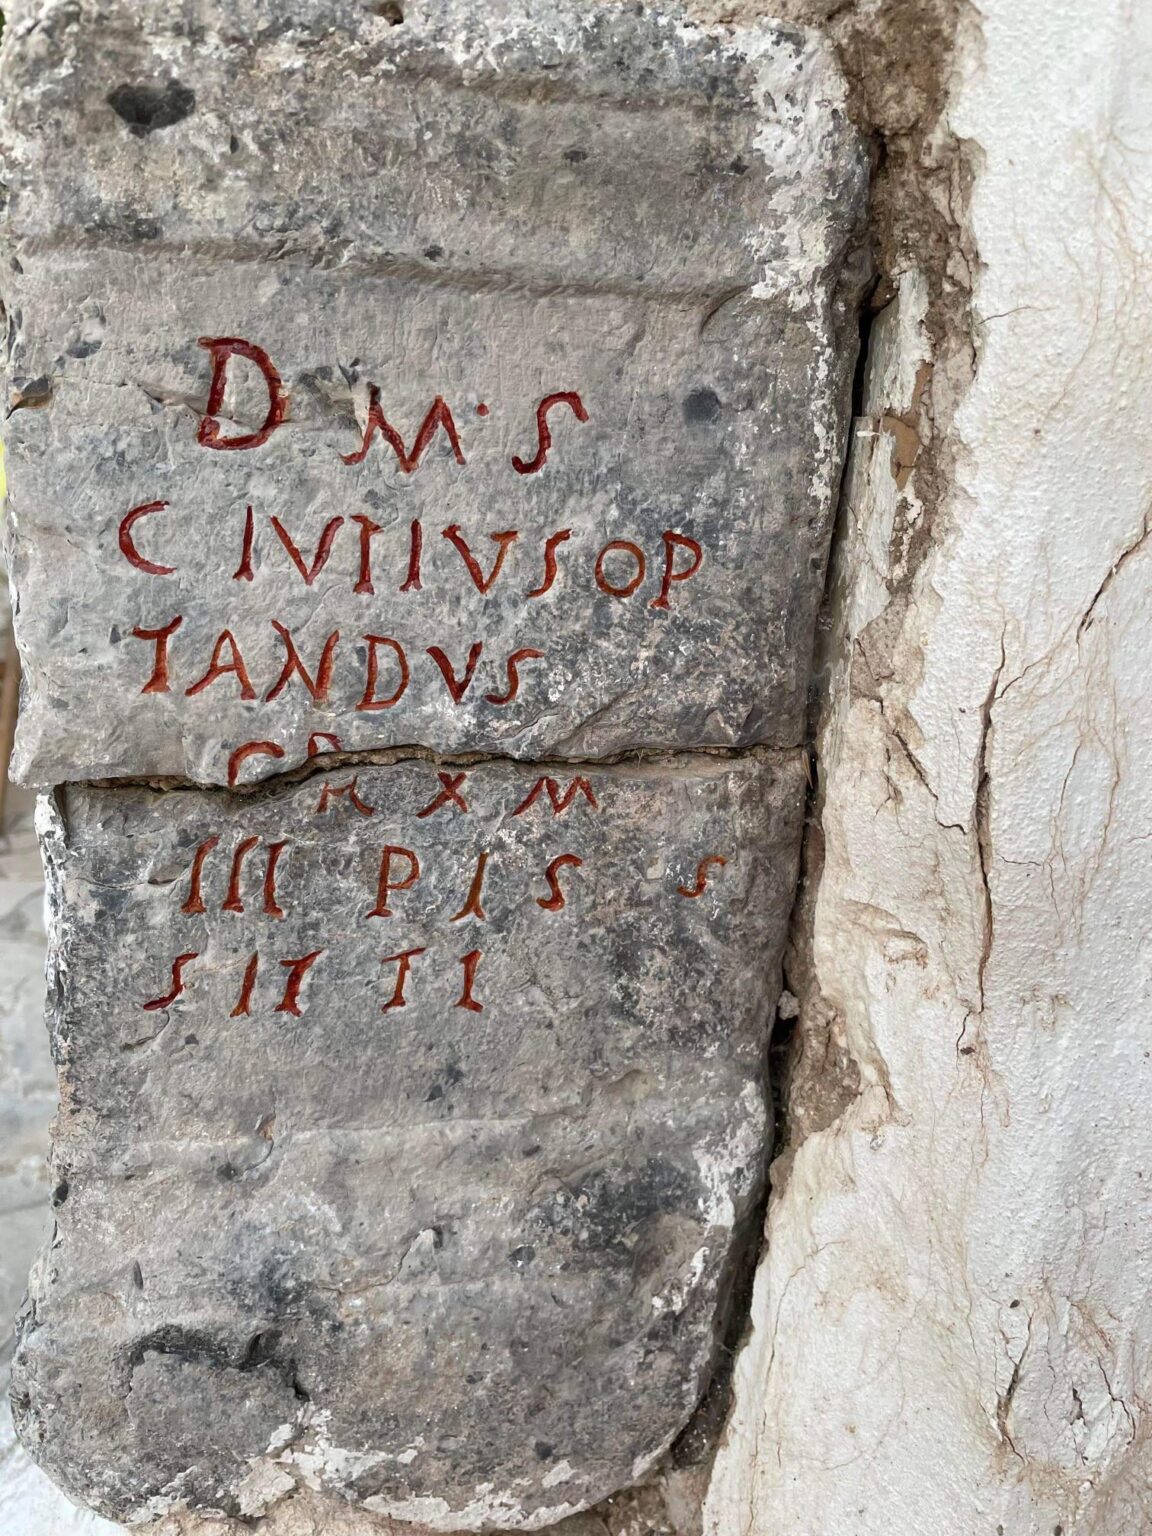 D M · S
C IVTIIVSOP
TANDVS
CR X M
III P I S S
S IT T I